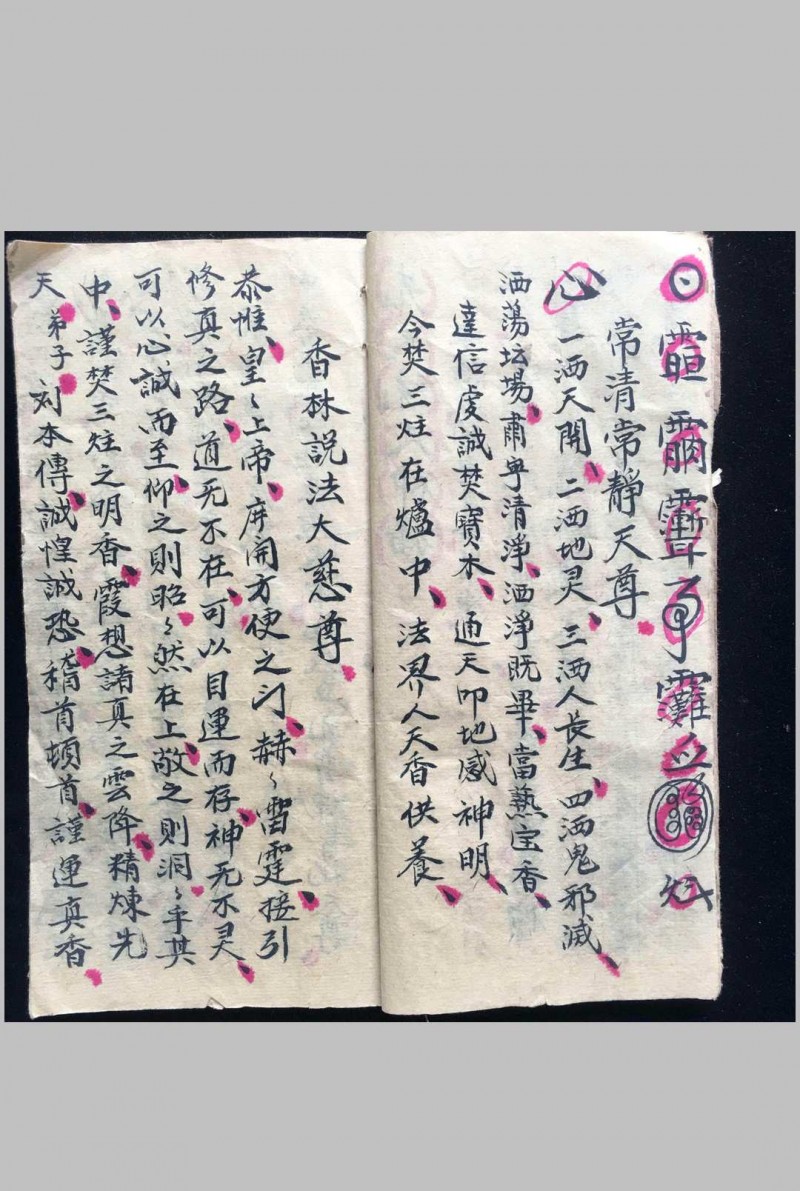 常清常靜天尊
心 一洒天開 二洒地灵、三洒人長生、四洒鬼邪滅、
洒蕩坛場、肅寧清淨、洒淨既畢、當爇宝香、
達信虔誠焚寶木、通天叩地感神明、
今焚三炷在爐中、法界人天香供養、
香林説法大慈尊、
恭惟、皇〻上帝、庠開方便之门、赫〻雷霆、接引
修真之路、道无不在、可以目運而存、神无不灵、
可以心誠而至、仰之則昭〻然在上、敬之則洞〻乎其
中、謹焚三炷之明香、霞想諸真之雲降、精煉先
天、弟子 对本傳、誠惶誠恐、稽首頓首、謹運真香